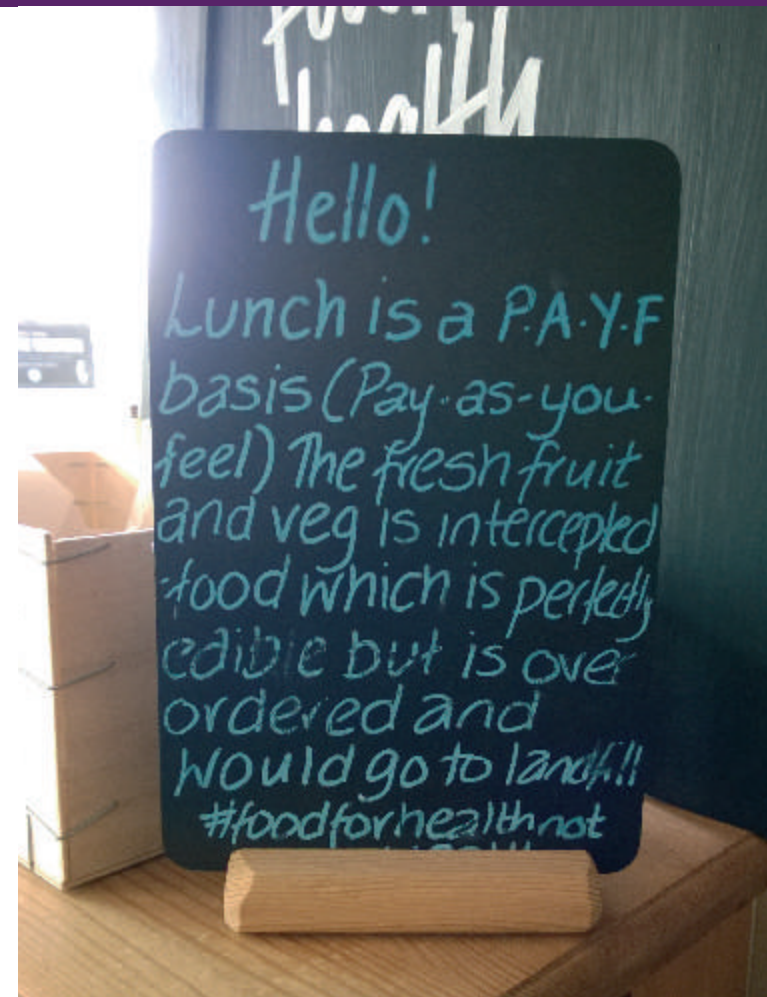 health
Hello!
Lunch is a P.A.Y.F
basis (Pay-as-you-
feel) The fresh fruit
and veg is intercepted
food which is perfectly
edible but is over
ordered and
would go to landfill
#foodforhealthnot